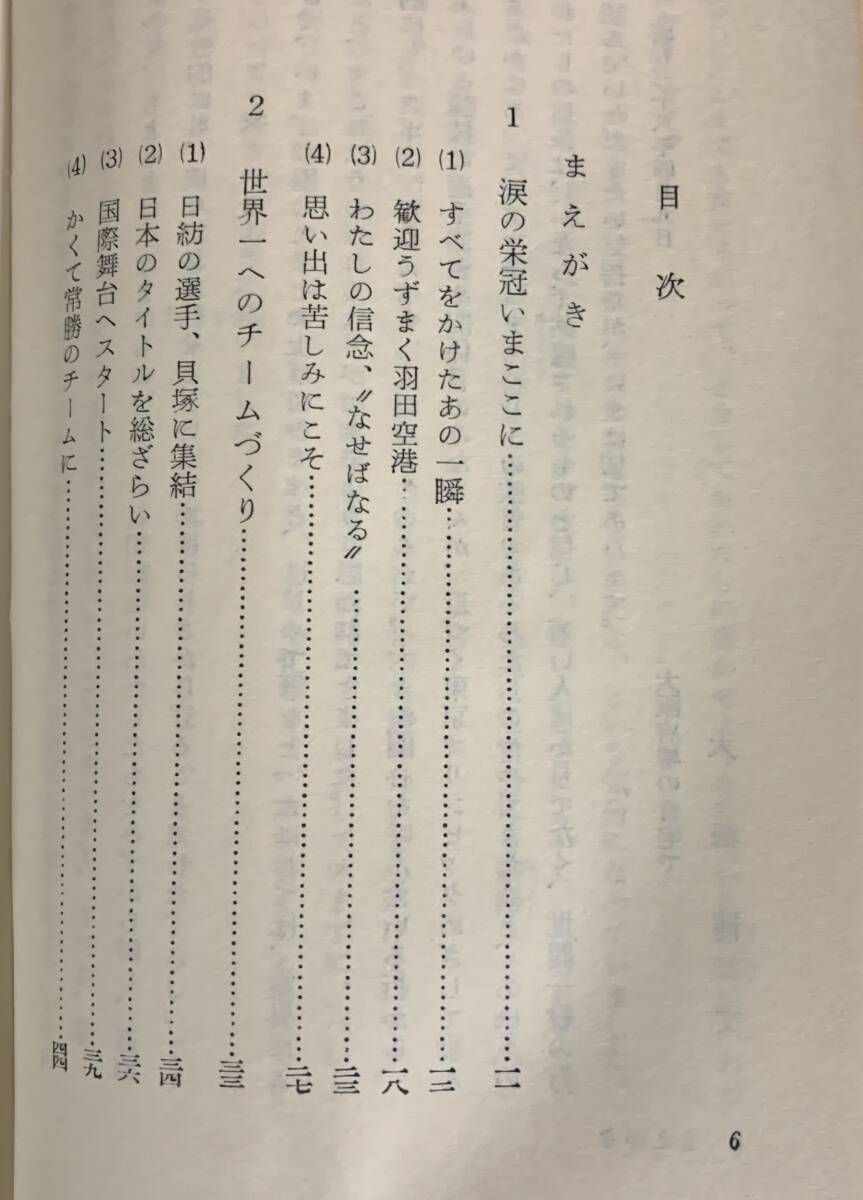 目次
まえがき
1 涙の栄冠いまここに……………………………一一
⑴ すべてをかけたあの一瞬……………………………一二
⑵ 歓迎うずまく羽田空港……………………………一八
⑶ わたしの信念、〝なせばなる〟……………………………二三
⑷ 思い出は苦しみにこそ……………………………二七
2 世界一へのチームづくり……………………………三三
⑴ 日紡の選手、貝塚に集結……………………………三四
⑵ 日本のタイトルを総ざらい……………………………三六
⑶ 国際舞台へスタート……………………………三九
⑷ かくて常勝のチームに……………………………四四
6